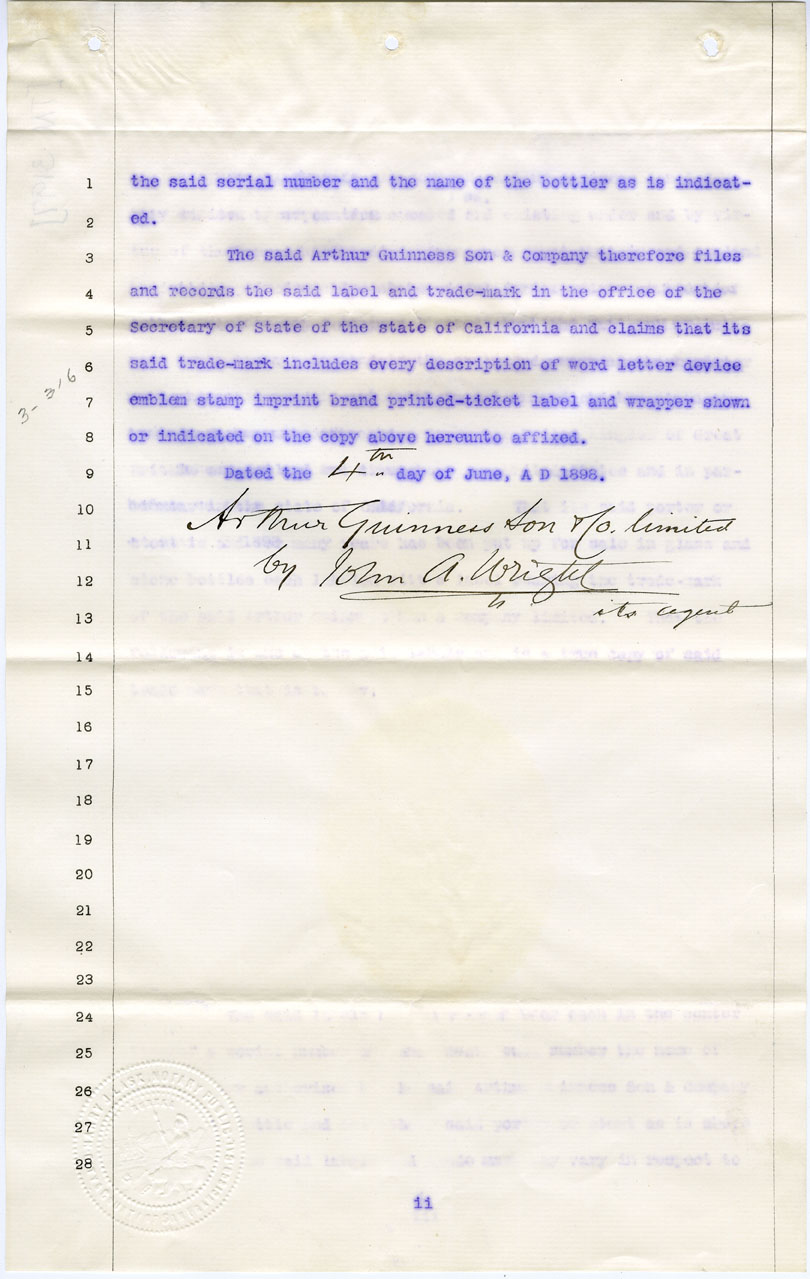 1 the said serial number and the name of the bottler as is indicat-
2 ed.
3 The said Arthur Guinness Son & Company therefore files
4 and records the said label and trade-mark in the office of the
5 Secretary of State of the state of California and claims that its
6 said trade-mark includes every description of word letter device
7 emblem stamp imprint brand printed-ticket label and wrapper shown
8 or indicated on the copy above hereunto affixed.
9 Dated the 4th day of June, A D 1898.
10 Arthur Guinness Son & Co. limited
11
12 by John A. Wright
13 its agent
14
15
16
17
18
19
20
21
22
23
24
25
26
27
28
3-3'6
ii